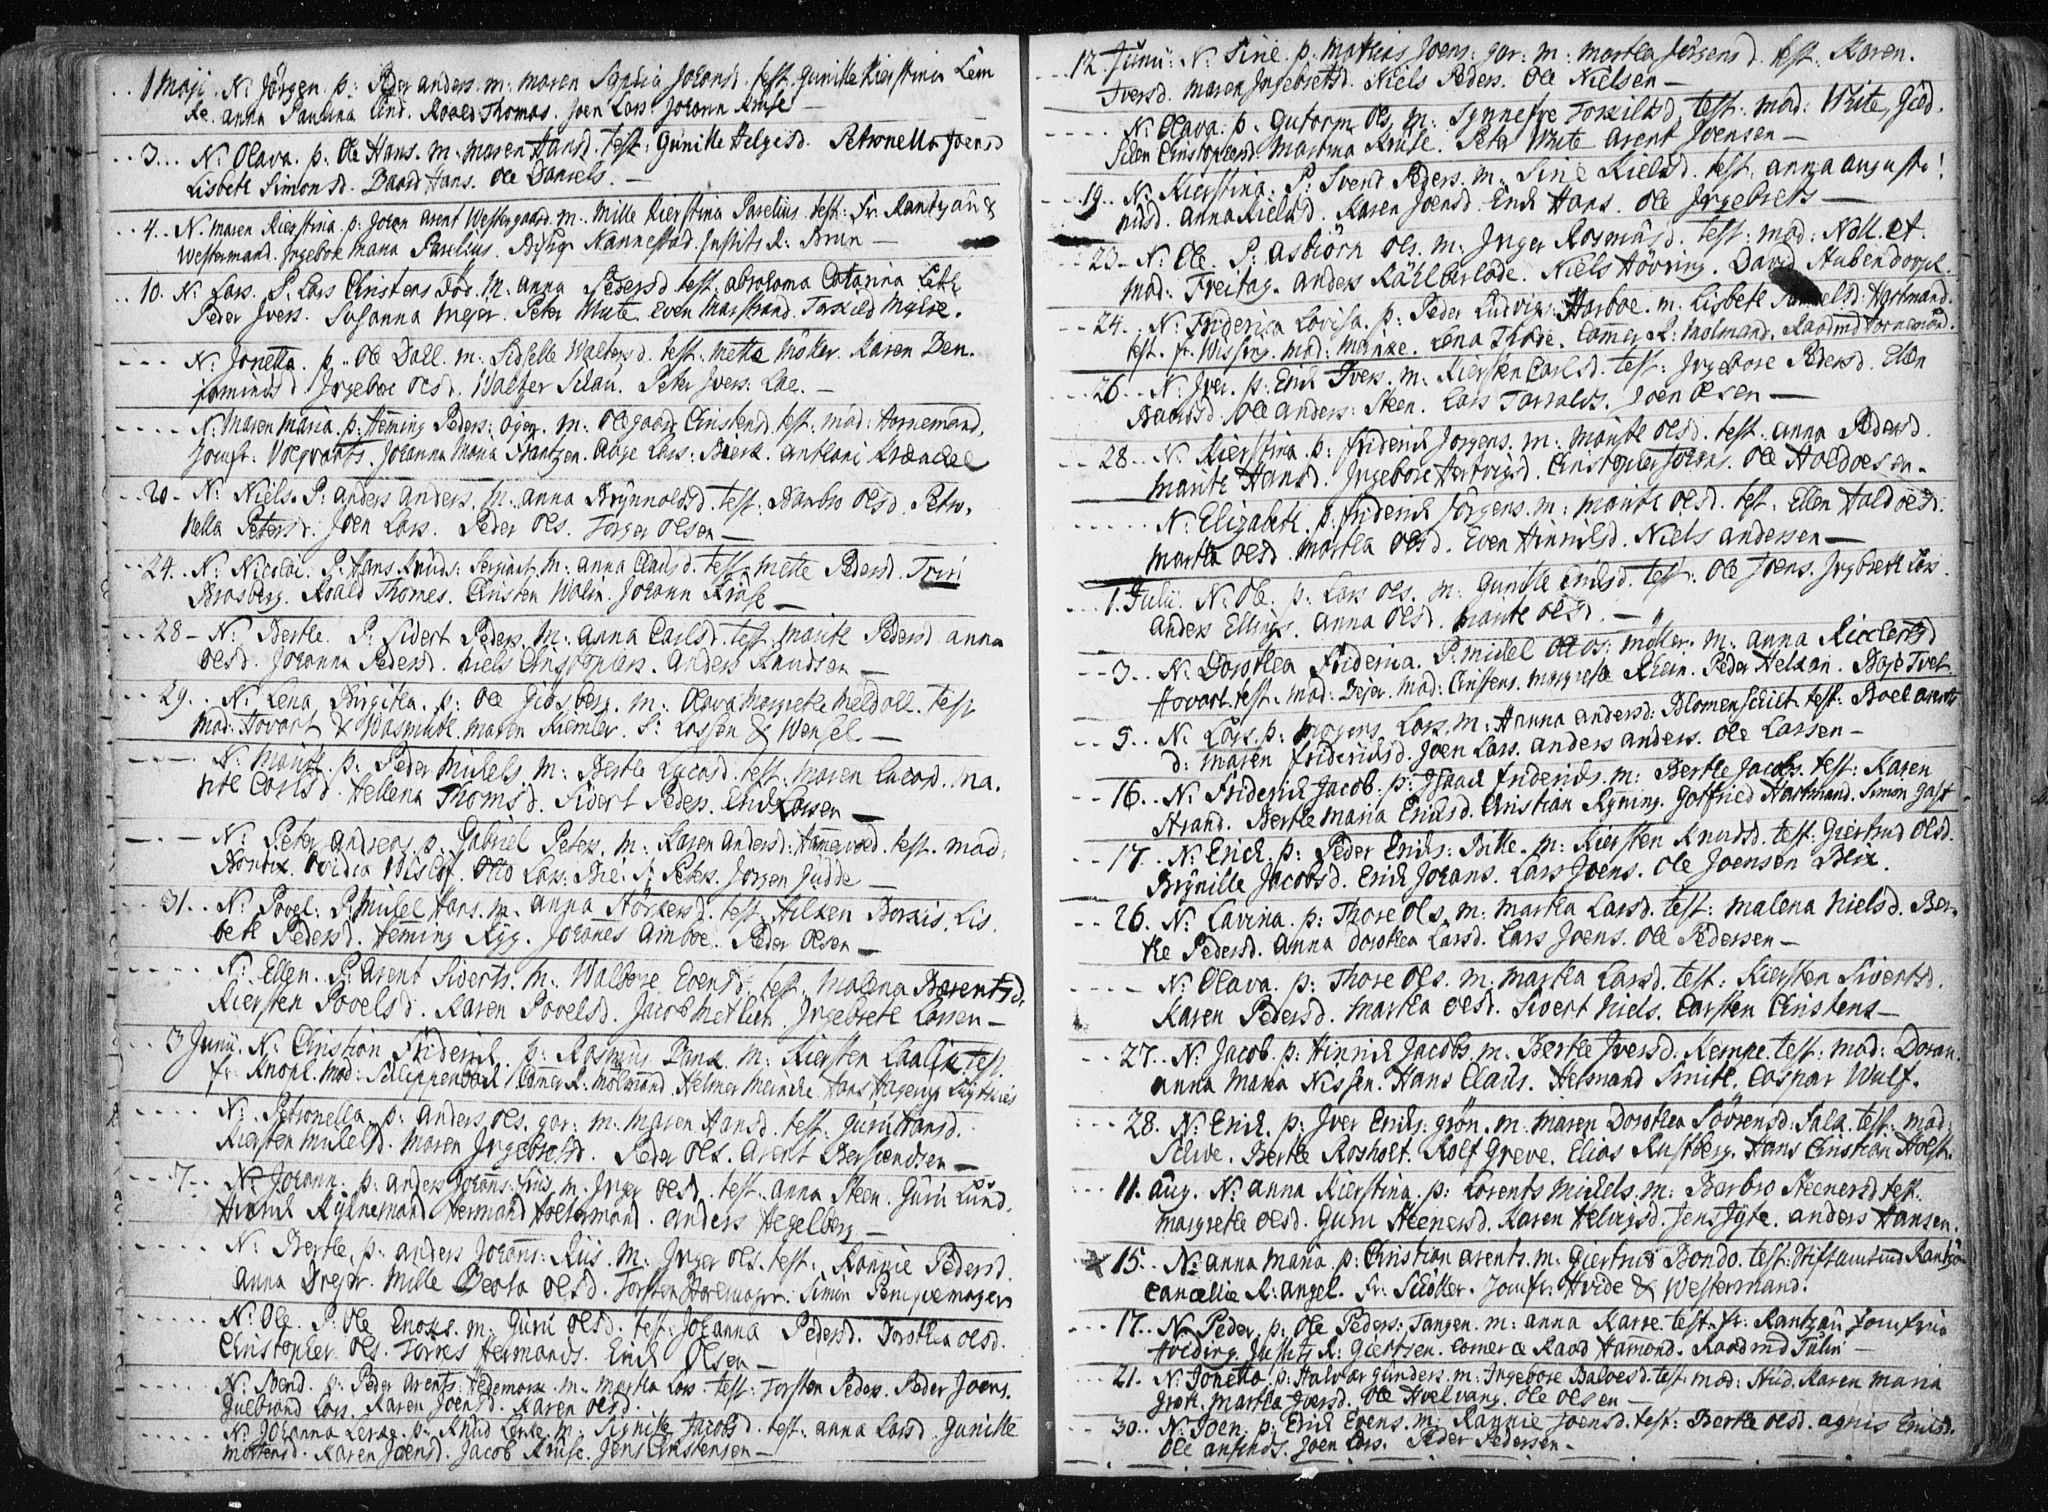 1 Maji. N: Jörgen. p: Peder anders. m: maren Sophia Johansd. test. Gunille Kierstina Lem
ke. anna Paulina Lind. Roald Thomas. Joen Lars. Johann Kruse —
3. N: Olava. p: Ole Hans. m: maren Hansd. test: Gunille Helgesd. Petronella Joensd
Lisbeth Simonsd. Baard Hans. Ole Daniels. —
4. N. maren Kierstina. p: Johan Arent Westergaard. m. Mille Kierstina Parelius. test: Fr. Rantzau &
Westermand. Ingebor maria Parelius. Bishop Nannestad. Justits R: Brun —
10. N: Lars. P: Lars Christens död. M: anna Pedersd. test: Catarina
Peder Ivers. Susanna Meyer. Peter Mute. Even Marstrand. Torkild
N: Jonetta. p: Ole Dall. m: Sidselle Waltersd. test. mette Möller. Karen Ben
jeminsd. Ingebor olsd. Walter Peter Ivers: Lae. —
N: Maren maria. p: Heming Peders: öyer. m: olegaard Christensd. test: mad: Hornemand,
Jomfr: Johanna Maria Frantzen. Aage Lars: Bierk. Anthoni
20. N: Niels. P: anders anders. M: anna Brynnolsd. test: Barbro olsd. Petro,
nella Petersd. Joen Lars. Peder ols. Torger Olsen —
24. N: Nicolai. P: Hans Knuds: Sergiant. M: anna Clausd. test: mette Pedersd. Trin
Brosberg. Roald Thomes. Christen Wolin. Johann Kruse —
28 N: Berthe. P: Sivert Peders. M: anna Carlsd. test: marite Pedersd. anna
olsd. Johanna Pedersd. Niels Christophers. Anders Knudsen —
29. N: Lena Birgitha. p: Ole Giosberg. m: Olava margrethe meldall. test
mad: Hovart & Wasmuth. maren S: Lossen & Wensel —
N: Marite. p: Peder Michels. m: Berthe Lucasd. test. maren Lucasd. ma.
rite Carlsd. Hellena Thomsd. Sivert Peders. Erich Larsen —
N: Peter Andreas. p: Gabriel Peters. m: Karen Andersd: Hammervold. test. mad:
Ovidia Otto Lars: Bie. S: Peters. Jörgen Gudde —
31. N: Povel: P: Michel Hans. m. anna test: Borais. Lis
beth Pedersd. Heming Ryg. Johanes Aimboe. Peder Olsen —
N: Ellen. P: Arent Siverts. M: Walbore Evensd. test. Malena Berentsd.
Kiersten Povelsd. Karen Povelsd. Jacob Metlien. Ingebreth Larsen —
3 Junii. N: Christian Friderich. p: Rasmus Bank. m: Kiersten test.
fr: Knoph. mad: Schippenbach. Commer R: Molmand. Helmer Meincke. Hans
N: Petronella. p: anders ols. gar: m: maren Hansd. test. guru Hansd.
Kiersten Michelsd. Maren Ingebretsd. Peder Ols. Arent Berssvendsen —
7. N: Johann. p: anders Johans: Friis. m. Inger olsd. test. anna Steen. Guru Lund.
Hinrich Hermand Holtermand. anders Hegelberg —
N: Berthe. p: anders Johans: Riis. m: Inger ols. test: Rannie Pedersd.
anna Dreyer. Mille Beata olsd. Torsten Simon
N: Ole. P: Ole Enoks. m: Guru olsd. test: Johanna Pedersd. Dorothea olsd.
Christopher ols. Torres Hermands. Erich Olsen —
N: Svend. p: Peder Arents: Hedemark. m: martha Lars: test: Torsten Peders. Peder Joens.
Gulbrand Lars. Karen Joensd. Karen olsd.
N: Johanna Lerke. p: Knud Lerke. m. Signille Jacobsd. test: anna Larsd. Gunille
mortensd. Karen Joensd. Jacob Kruse. Jens Christensen —
12 Junii: N: Sirie. p: Mathias Joens: gar: m: martha Jörgensd. test: Karen.
Iversd. maren Ingebretsd. Niels Peders. Ole Nielsen —
N: Olava. p: Gutorm Ols. m: Synnefve Torkildsd. test: mad: White, Gied.
Christophersd. Martha Kruse. Peter White. Arent Joensen —
19. N: Kierstina. P: Svend Peders. m: Sirie Kielsd. test: anna augusti
nusd. anna Kielsd. Karen Joensd. Erich Hans. Ole Ingebrets —
23 N: Ole. P: asbiörn ols. m: Inger Rasmusd. test: mad: Noll et.
mad: Freitag. anders Niels Hövring. David Hubendorph.
24. N: Friderica Lovisa. p: Peder Ludvig: Harboe. m. Lisbeth Hartmand.
test. fr: Wissing. mad: Lena Thode. Commer R: Molmand. Raadmd Hornemand.
26. N: Iver. p: Erich Ivers. m: Kiersten Carlsd. test: Ingebore Pedersd. Ellen
Baardsd. Ole Anders: Steen. Lars Torralds. Joen Olsen —
28. N: Kierstina. p: friderich Jörgens. m: marite olsd. test. anna Pedersd.
marite Hansd. Ingebore Christopher Johans. Ole Haldoesen
N: Elizabeth. p: friderich Jörgens. m: marite olsd. test: Ellen Haldoesd.
martha olsd. martha olsd. Even Hinrichsd. Niels andersen —
1. Julii. N: Ole. p: Lars ols. m: Gunille Erichsd. test: Ole Joens. Ingbreth Lars.
anders Ellings. anna olsd. marite olsd. —
3. N: Dorothea Friderica. P: michel möller. m: anna
Hovart. test. mad: Dejer. mad: Christens. margrethe Rhein. Peder
9. N: Lars. p: Mogens Lars. m: Hanna andersd: Blomenschildt. test: Boel anders
d: maren friderichsd. Joen Lars. anders anders. Ole Larsen —
16. N: Friderich Jacob. p: Isaach friderichs. m: Berthe Jacobs. test: Karen
Strand. Berthe Maria Erichsd. Christian Ryning. Gotfried Hartmand. Simon Gast
17. N: Erich. p: Peder Erichs: Bille. m: Kiersten Knudsd. test: Giertrud olsd.
Brynille Jacobsd. Erich Johans. Lars Joens. Ole Joensen Blix.
26. N: Lavina. p: Thore ols. m: martha Larsd. test: malena Nielsd. Ber.
the Pedersd. anna Dorothea Larsd. Lars Joens. Ole Pedersen —
N: Olava. p: Thore ols. m: martha Larsd. test: Kiersten Sivertsd.
Karen Pedersd. martha olsd. Sivert Niels. Carsten Christens —
27. N: Jacob. p: Hinrich Jacobs. m: Berthe Iversd: Kempe. test: mad: Doran
anna Maria Nissen. Hans Claus. Helmand Smith. Caspar Wulf.
28. N: Erich. p: Iver Erichs: grön. m. maren Dorothea Sörensd: Salx. test: mad:
Schive. Berthe Rosholt. Rolf Greve. Elias Rustberg. Hans Christian Holst.
11. aug. N: anna Kierstina. p: Lorents Michels. m: Barbro Steenersd. test:
margrethe olsd. Guru Steenersd. Karen Helvigsd. Jens Jyte. anders Hansen.
15. N: anna maria. p: Christian arents. m: Giertrud Bondo. test: Stiftamtmd Rantzo
Cancellie R: Angel. Fr: Schöller. Jomfr: Hvide & Westermand.
17. N: Peder. p: Ole Peders: Tangen. m: anna Karre. test: fr: Rantzau. Jomfru
Hveding. Justits R: Giertsen. Comerce Raad Hammond. Raadmd Tulin —
21. N: Jonetta. p: Halvar Gunders. m: Ingebore Balvesd. test: mad: Hiid. Karen maria
Groth. martha Iversd. Ole Hoelvang. Ole Olsen
30. N: Joen. p: Erich Evens. m: Rannie Joensd. test: Berthe olsd. agnis Erichsd.
Ole anfinds. Joen Lars. Peder Pedersen —